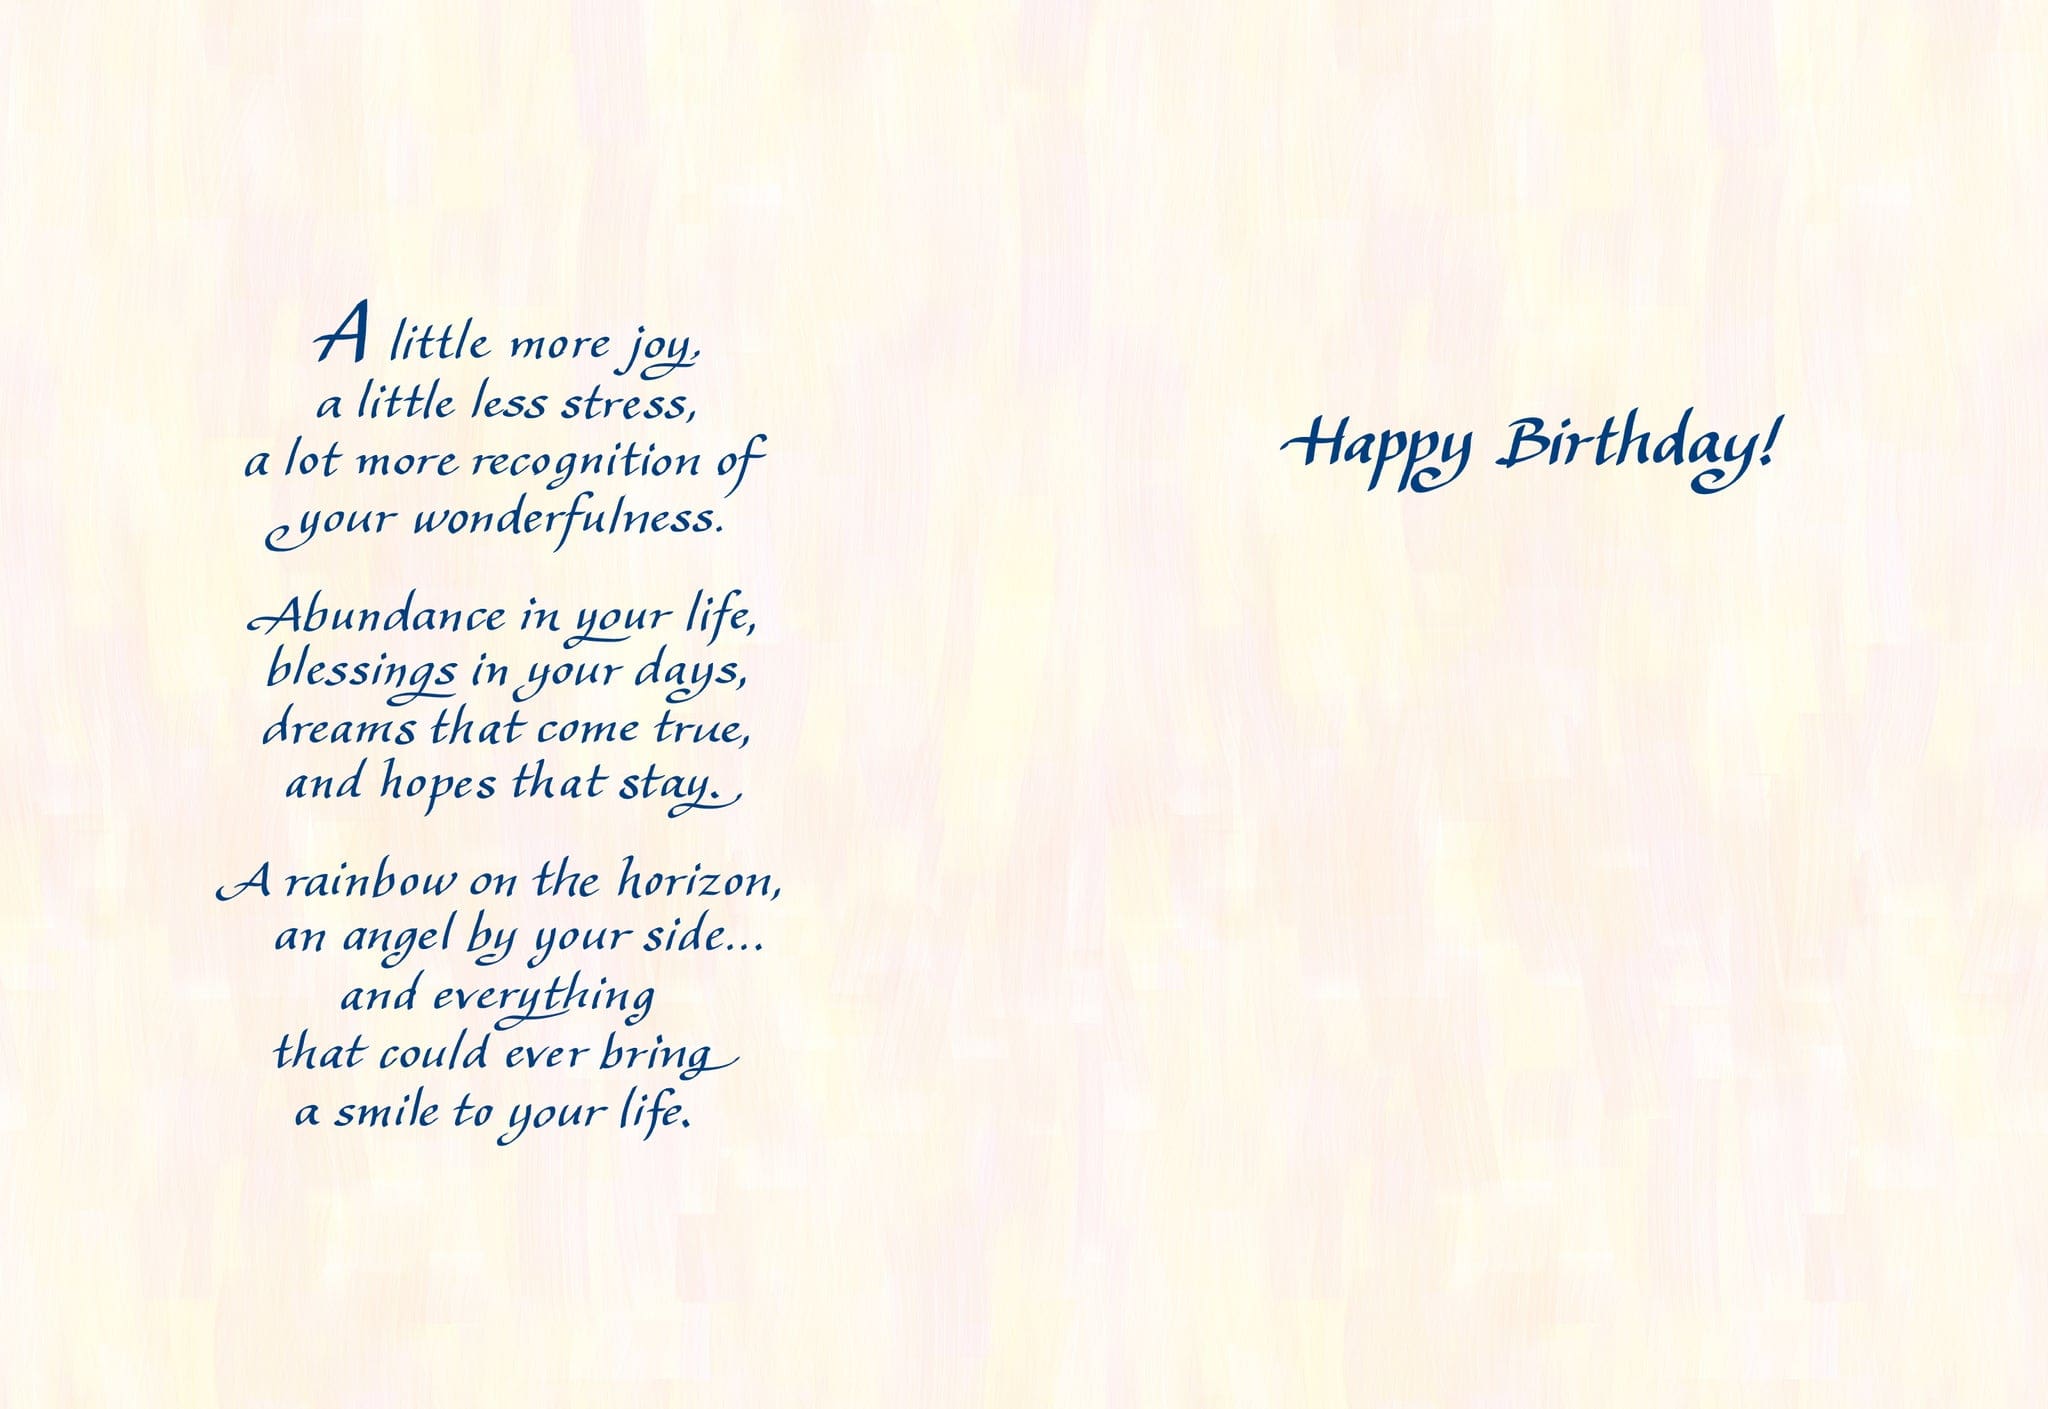 A little more joy,
a little less stress,
a lot more recognition of
your wonderfulness.
Abundance in your life,
blessings in your days,
dreams that come true,
and hopes that stay.
A rainbow on the horizon,
an angel by your side...
and everything
that could ever bring
a smile to your life.
Happy Birthday!